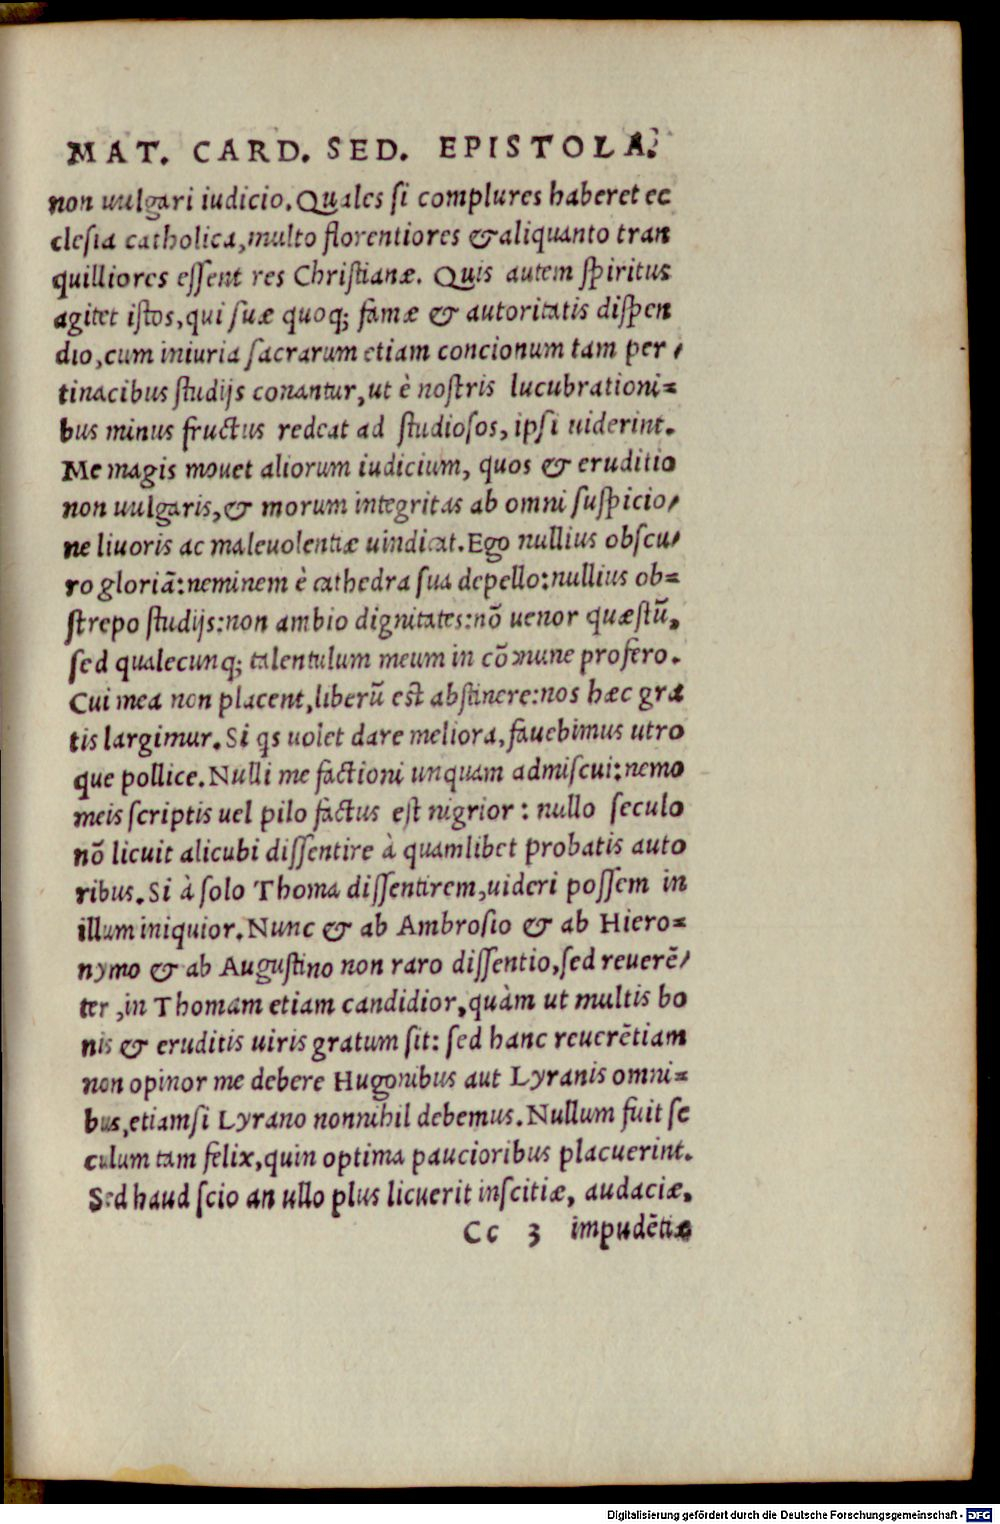 MAT. CARD. SED. EPISTOLA.
non uulgari iudicio. Quales si complures haberet ec
clesia catholica, multo florentiores & aliquanto tran
quilliores essent res Christianæ. Quis autem spiritus
agitet istos, qui suæ quoq; famæ & autoritatis dispen
dio, cum iniuria sacrarum etiam concionum tam per/
tinacibus studijs conantur, ut è nostris lucubrationi=
bus minus fructus redeat ad studiosos, ipsi uiderint.
Me magis mouet aliorum iudicium, quos & eruditio
non uulgaris, & morum integritas ab omni suspicio/
ne liuoris ac maleuolentiæ uindicat. Ego nullius obscu/
ro gloriā: neminem è cathedra sua depello: nullius ob=
strepo studijs: non ambio dignitates: nō uenor quæstū,
sed qualecunq; talentulum meum in cōmune profero.
Cui mea non placent, liberū est abstinere: nos hæc gra
tis largimur. Si qs uolet dare meliora, fauebimus utro
que pollice. Nulli me factioni unquam admiscui: nemo
meis scriptis uel pilo factus est nigrior: nullo seculo
nō licuit alicubi dissentire à quamlibet probatis auto
ribus. Si à solo Thoma dissentirem, uideri possem in
illum iniquior. Nunc & ab Ambrosio & ab Hiero=
nymo & ab Augustino non raro dissentio, sed reuerē/
ter, in Thomam etiam candidior, quàm ut multis bo
nis & eruditis uiris gratum sit: sed hanc reuerētiam
non opinor me debere Hugonibus aut Lyranis omni=
bus, etiamsi Lyrano nonnihil debemus. Nullum fuit se
culum tam felix, quin optima paucioribus placuerint.
Sed haud scio an ullo plus licuerit inscitiæ, audaciæ,
Cc 3 impudētiæ
Digitalisierung gefördert durch die Deutsche Forschungsgemeinschaft - DFG